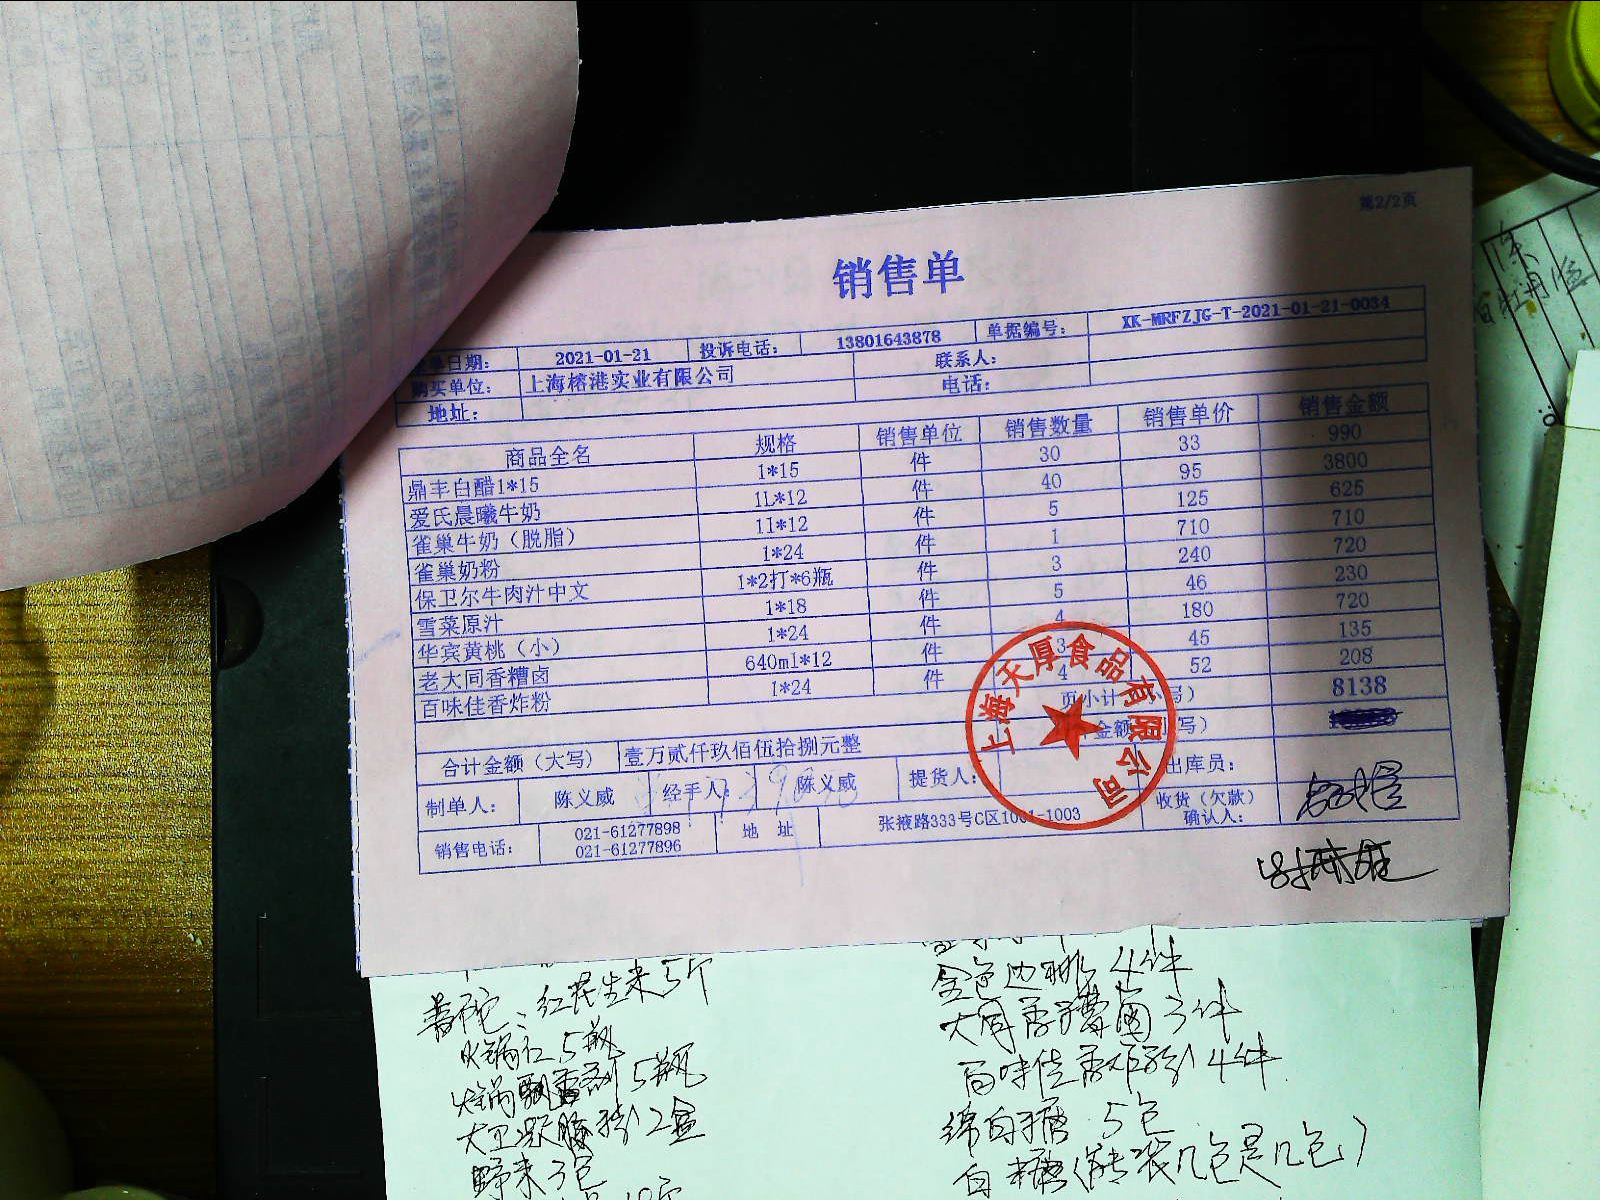 第2/2页
销售单
单日期: 2021-01-21 投诉电话: 13801643878 单据编号: XK-MRFZJG-T-2021-01-21-0034
购买单位: 上海榕港实业有限公司 联系人:
地址: 电话:
商品全名 规格 销售单位 销售数量 销售单价 销售金额
鼎丰白醋1*15 1*15 件 30 33 990
爱氏晨曦牛奶 1L*12 件 40 95 3800
雀巢牛奶（脱脂） 1l*12 件 5 125 625
雀巢奶粉 1*24 件 1 710 710
保卫尔牛肉汁中文 1*2打*6瓶 件 3 240 720
雪菜原汁 1*18 件 5 46 230
华宾黄桃（小） 1*24 件 4 180 720
老大同香糟卤 640ml*12 件 3 45 135
百味佳香炸粉 1*24 件 4 52 208
页小计 写） 8138
合计金额（大写） 壹万贰仟玖佰伍拾捌元整 金额 写）
制单人: 陈义威 经手人: 陈义威 提货人: 出库员:
销售电话: 021-61277898 地 址 张掖路333号C区1001-1003 收货（欠款）
021-61277896 确认人:
上海天厚食品有限公司
金色边桃 4件
大同香糟卤 3件
百味佳香炸粉 4件
绵白糖 5包
白糖（散装几包是几包）
普陀: 红花生米5斤
火锅红5瓶
火锅飘香剂5瓶
2盒
野米3包